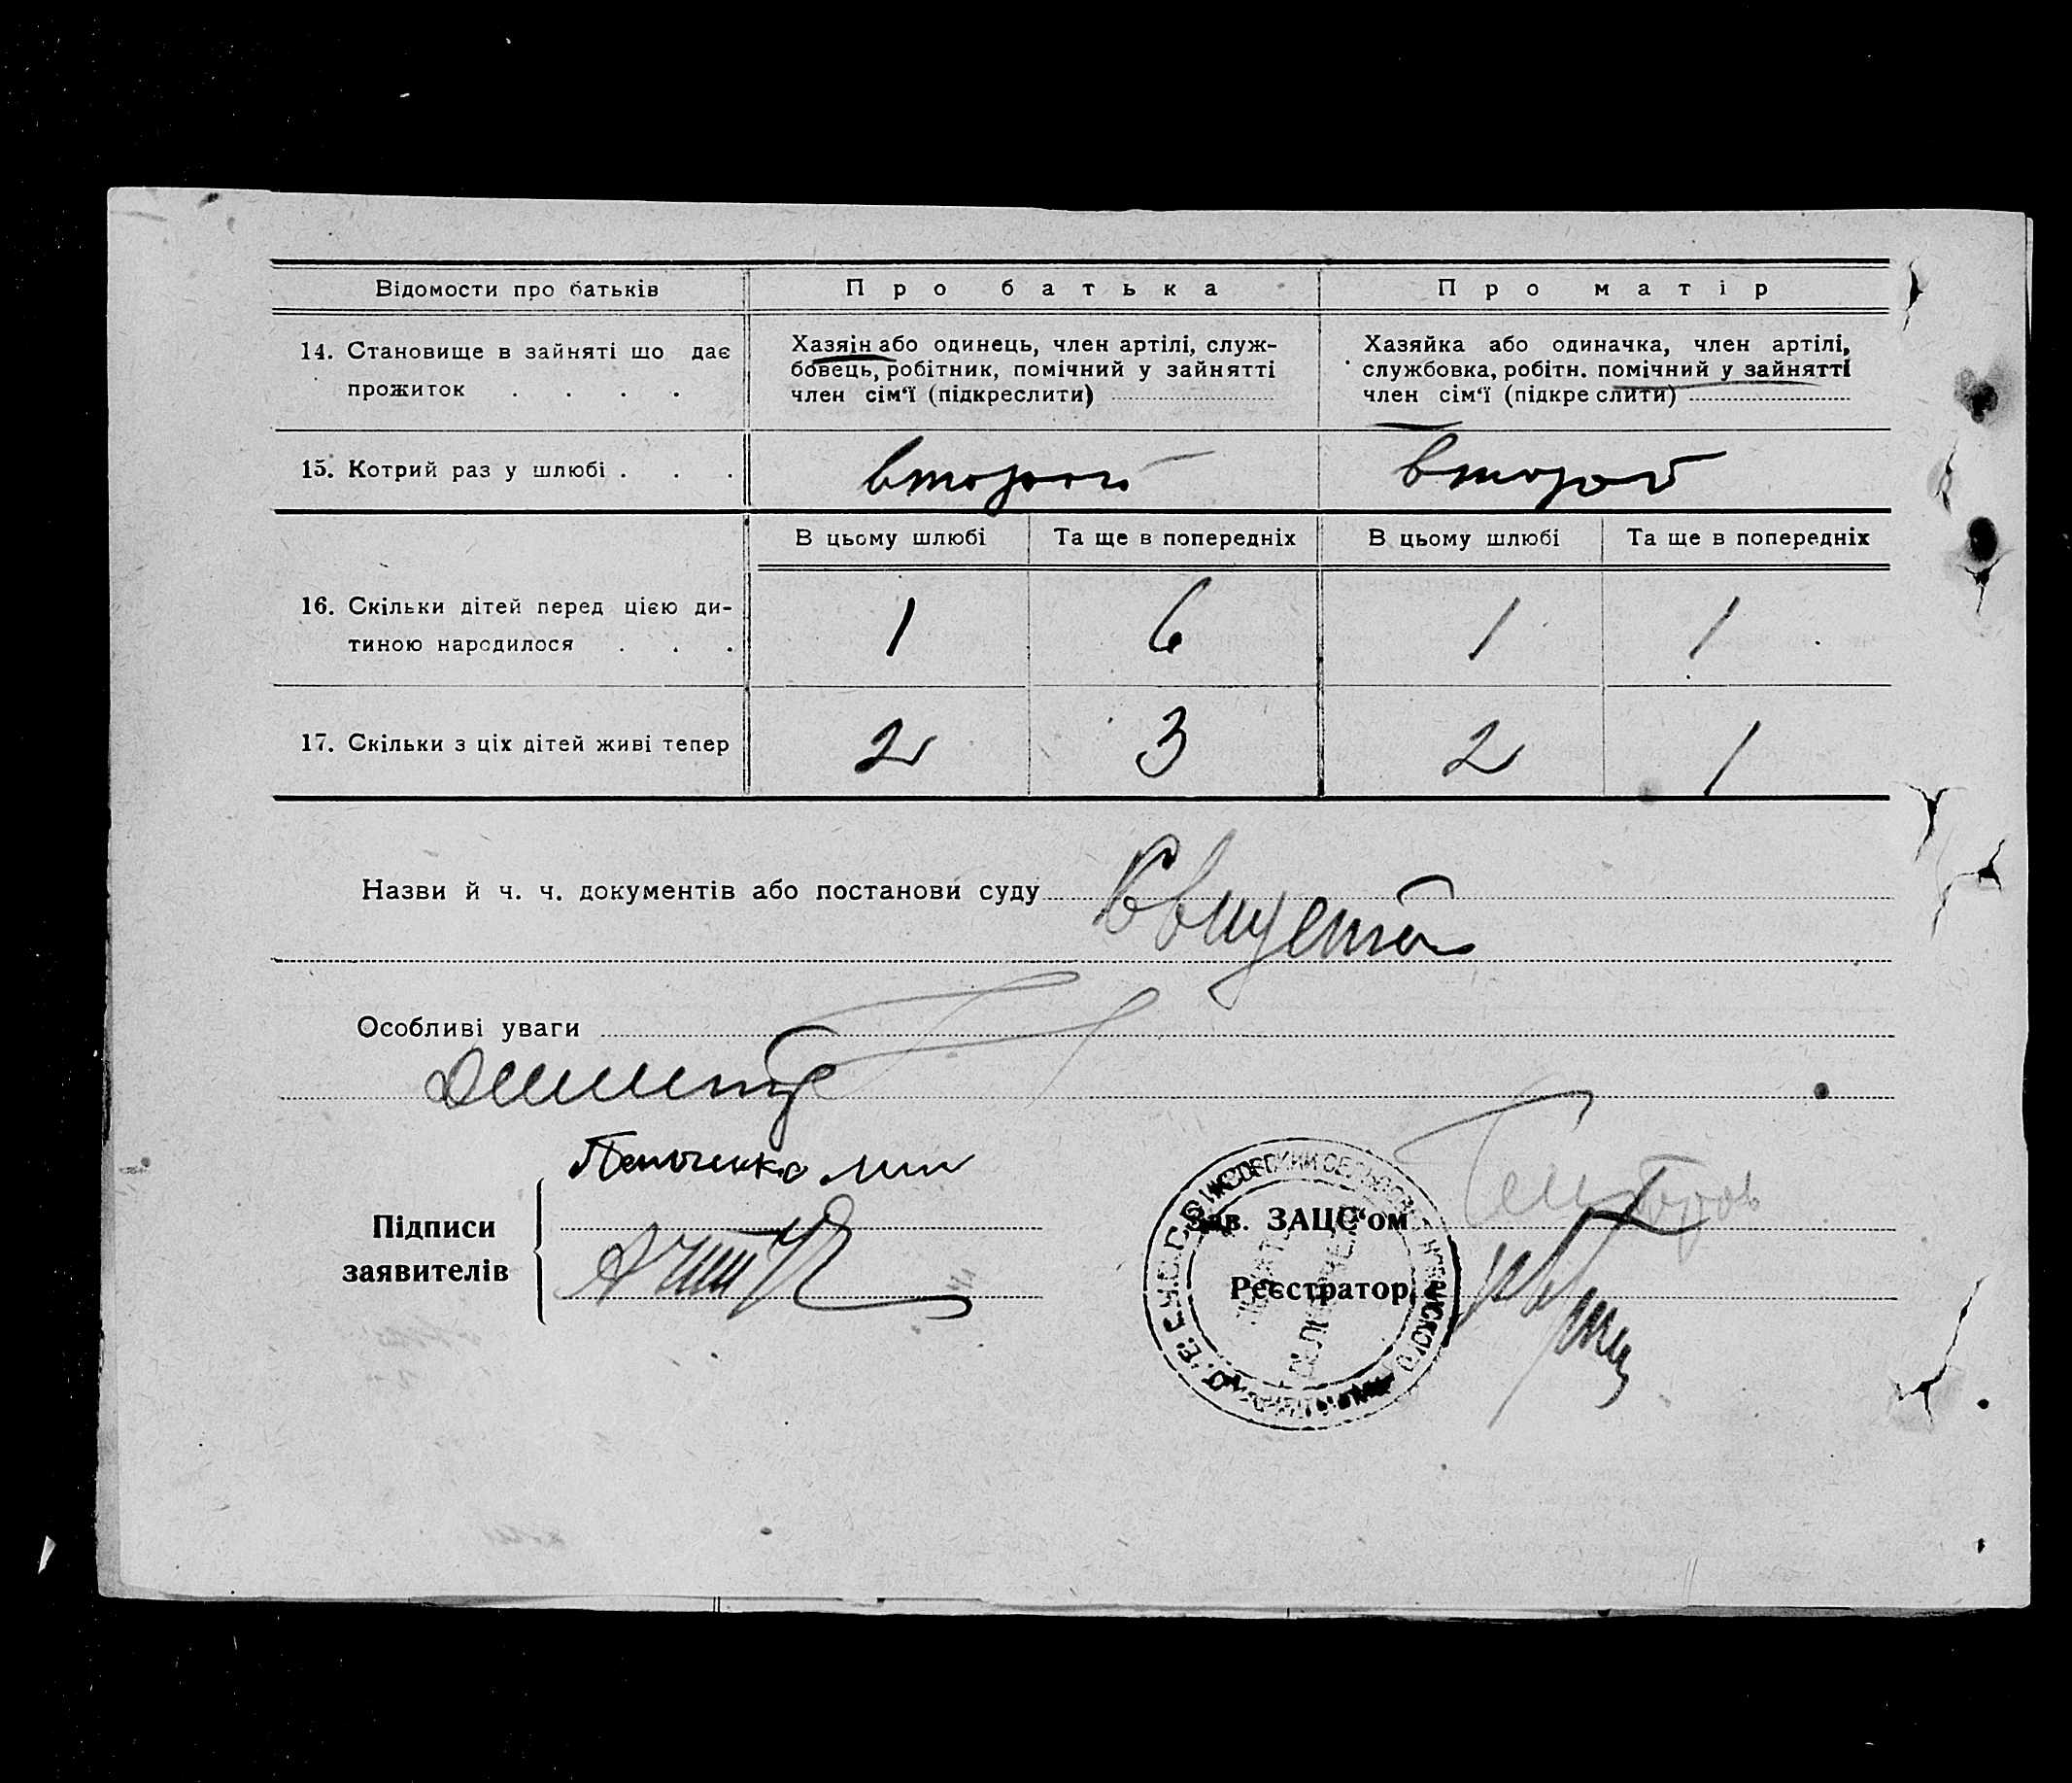 Відомости про батьків
Про батька
Про матір
14. Становище в зайняті що дає
прожиток . . . .
Хазяін або одинець, член артілі, служ-
бовець, робітник, помічний у зайнятті
член сім'ї (підкреслити)
Хазяйка або одиначка, член артілі,
службовка, робітн. помічний у зайнятті
член сім'ї (підкреслити)
15. Котрий раз у шлюбі . . .
второй
второй
В цьому шлюбі
Та ще в попередніх
В цьому шлюбі
Та ще в попередніх
16. Скільки дітей перед цією ди-
тиною народилося . . .
1
6
1
1
17. Скільки з ціх дітей живі тепер
2
3
2
1
Назви й ч. ч. документів або постанови суду
Особливі уваги
Підписи
заявителів
Зав. ЗАЦС'ом
Реєстратор